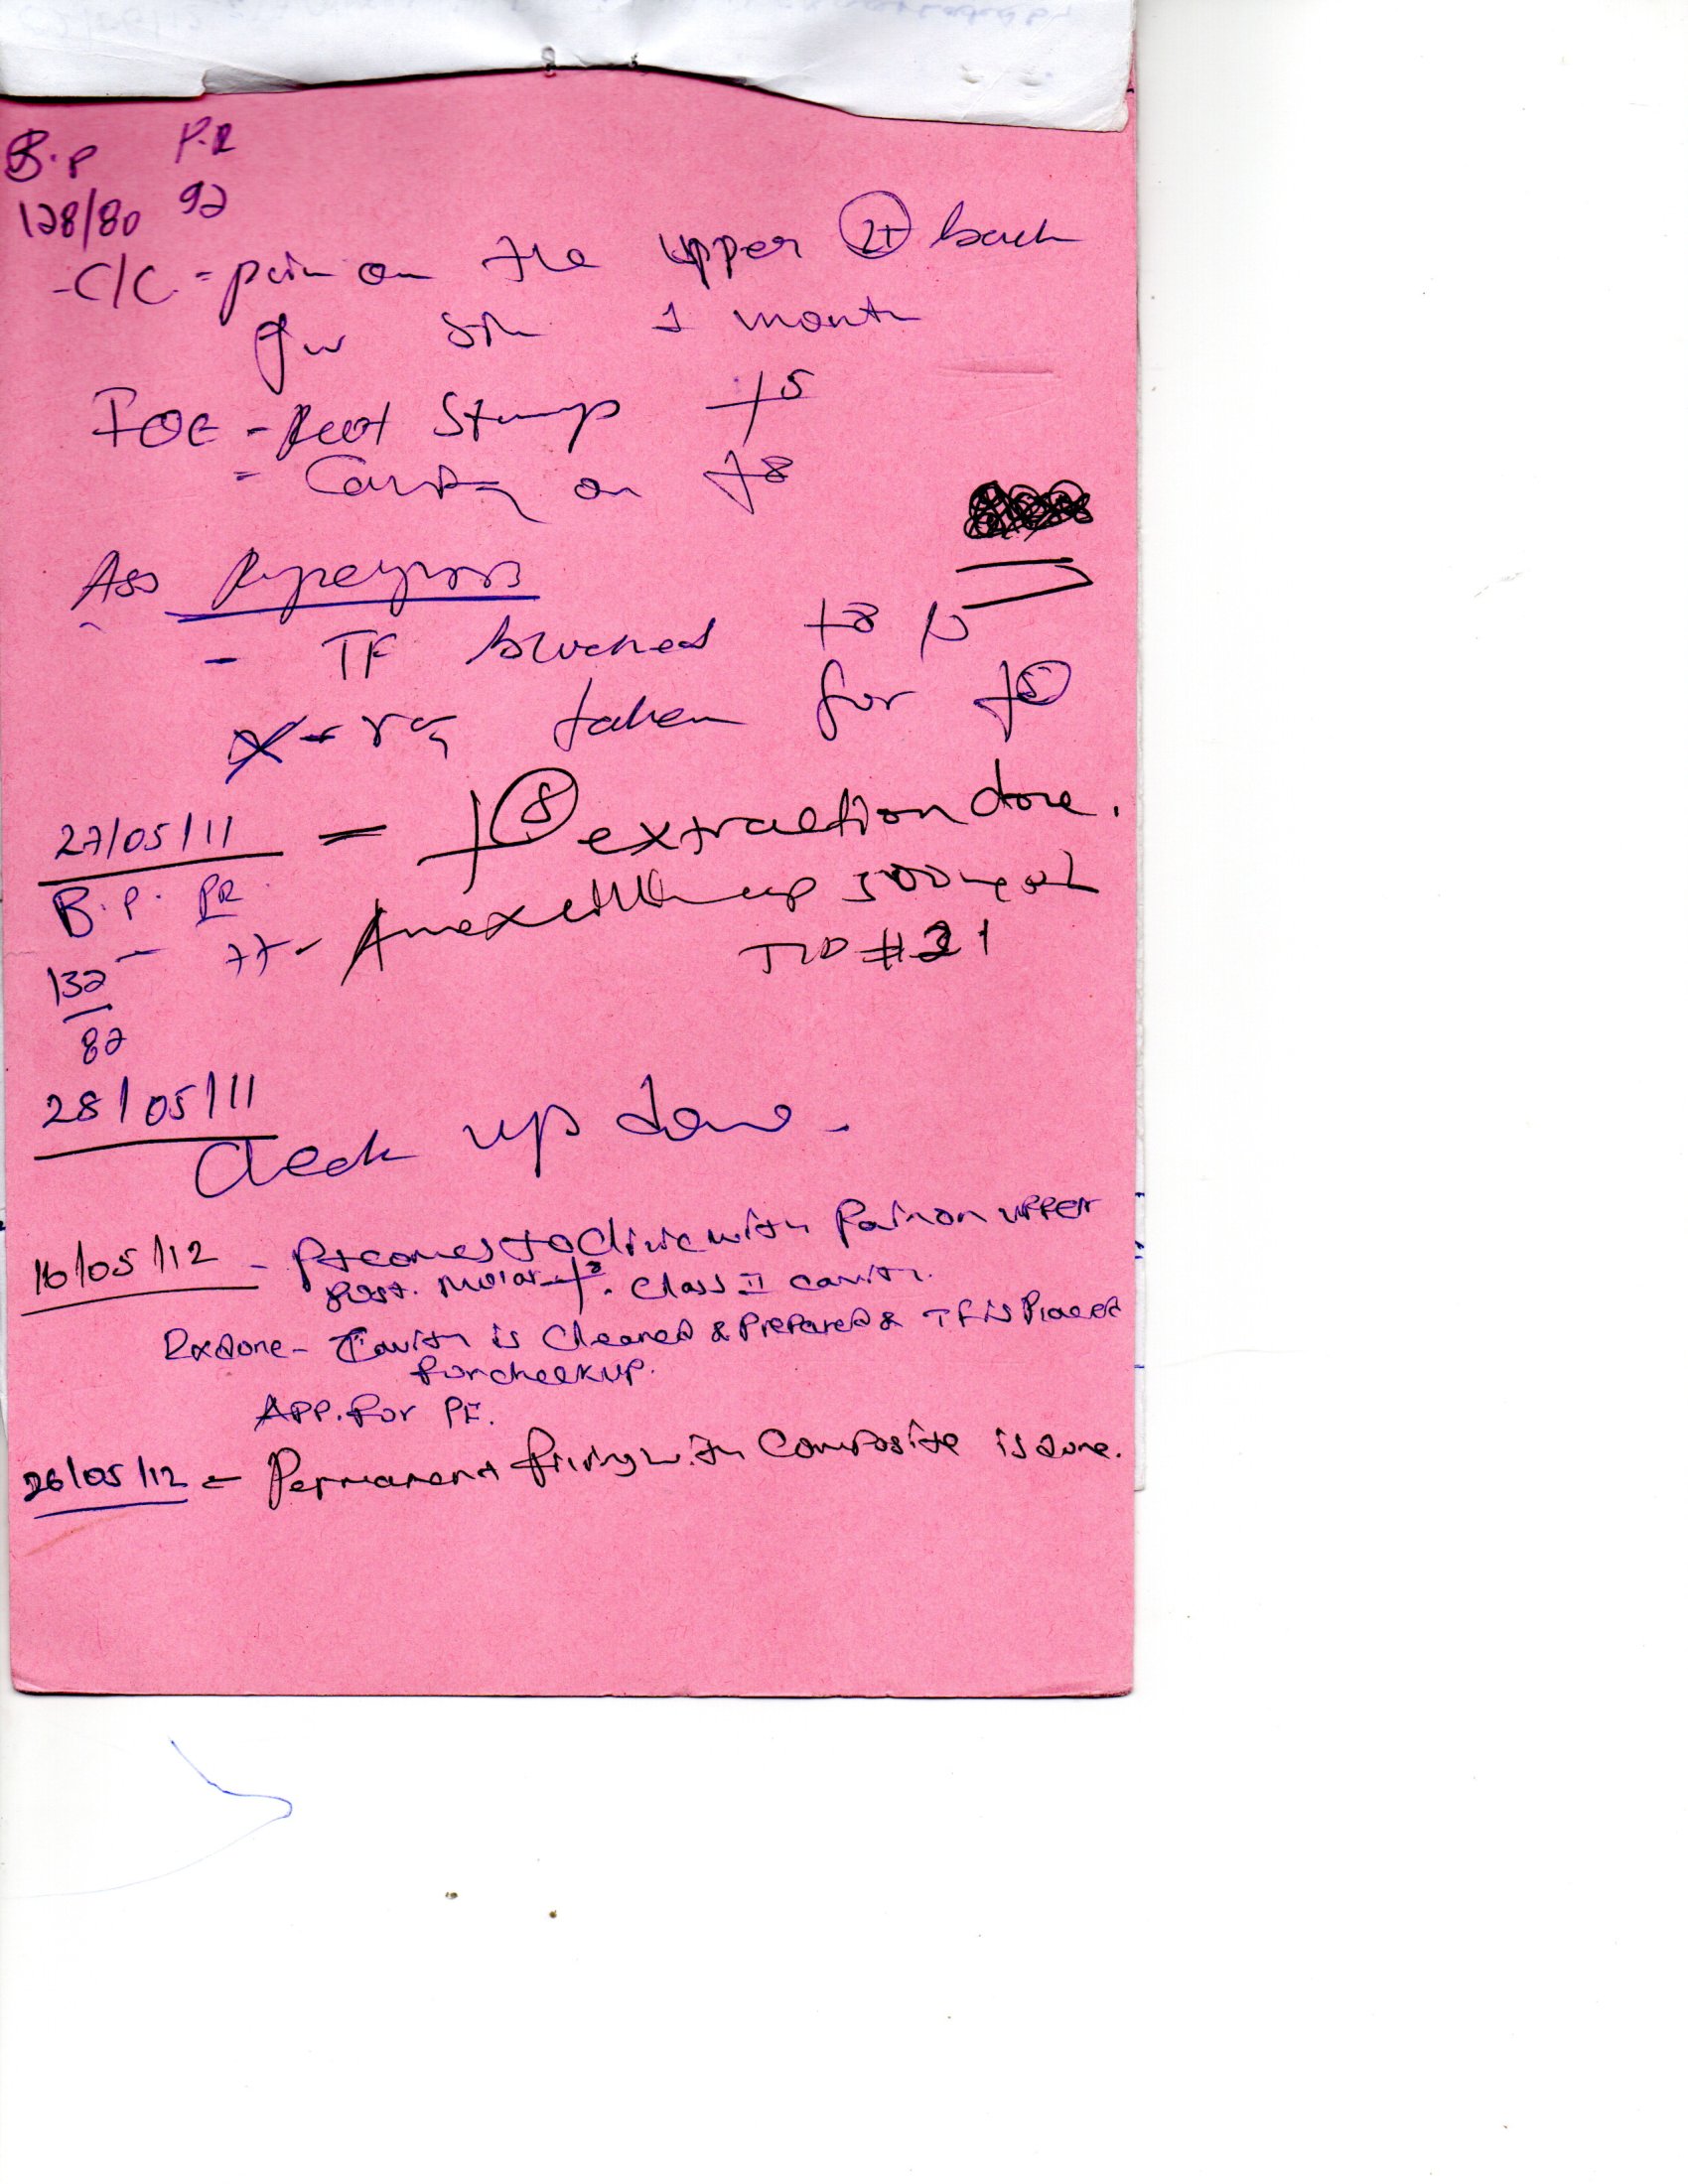 B.P P.R
128/80 92
- C/C - pain on the upper back
1 month
IOE - Root Stump +5
= Cavity on +8
Ass
- TF +8
X-ray taken for +5
27/05/11 = +8 extraction done.
B.P. PR
132 77 - 500mg
82 TID #21
28/05/11
Check up done.
16/05/12 - Pt comes to Clinic with Pain on upper
Post. Molar +8. Class II cavity.
Rx done - Cavity is Cleaned & Prepared & TF is Placed
for checkup.
APP. for PF.
26/05/12 = Permanent filling with Composite is done.